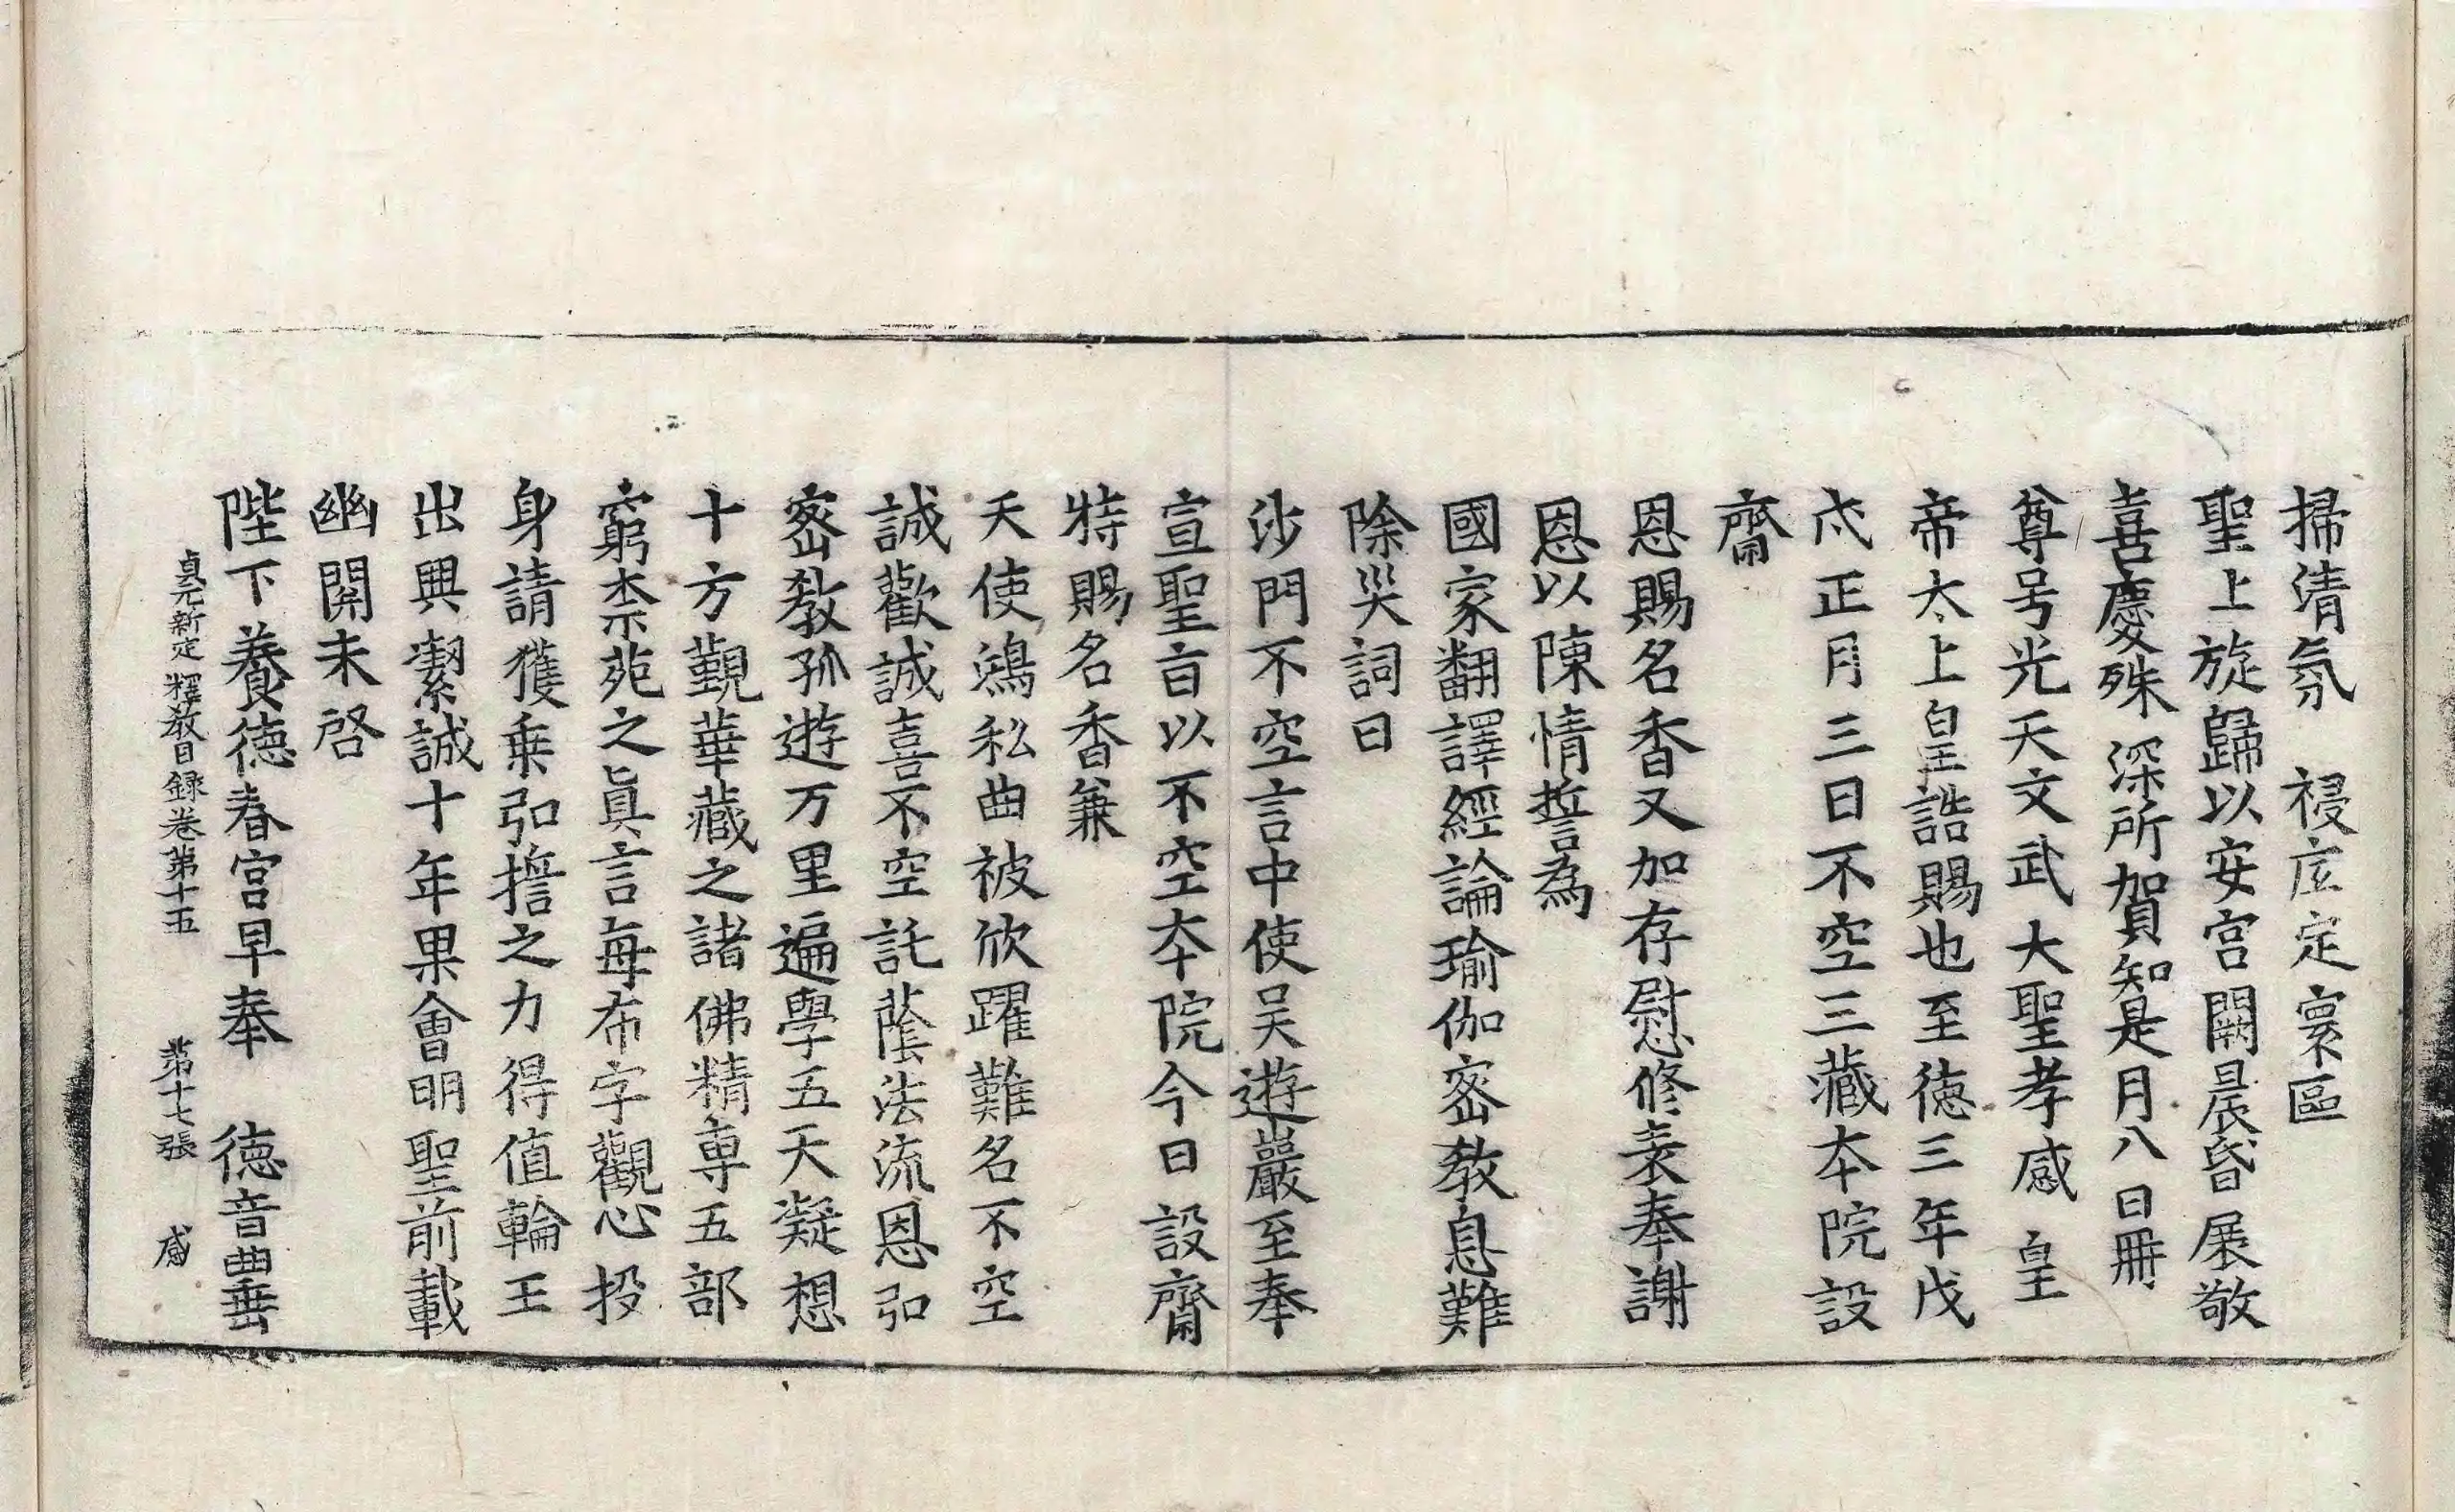 掃清氛　祲㡯定寰區
聖上旋歸以安宮闕晨昏展敬
喜慶殊深所賀知是月八日冊
尊号光天文武大聖孝感皇
帝太上皇誥賜也至德三年戊
戌正月三日不空三藏本院設
齋
恩賜名香又加存慰修表奉謝
恩以陳情誓為
國家翻譯經論瑜伽密教息難
除災詞曰
沙門不空言中使吴遊巖至奉
宣聖旨以不空本院今日設齋
特賜名香兼
天使鴻私曲被欣躍難名不空
誠歡誠喜不空託蔭法流恩弘
密教孤遊万里遍學五天凝想
十方覲華藏之諸佛精專五部
窮柰苑之眞言每布字觀心投
身請獲乗弘擔之力得值輪王
出興潔誠十年果會明聖前載
幽關未啓
陛下養德春宮早奉　德音曲垂
貞元新定釋教目録卷第十五　第十七張　感